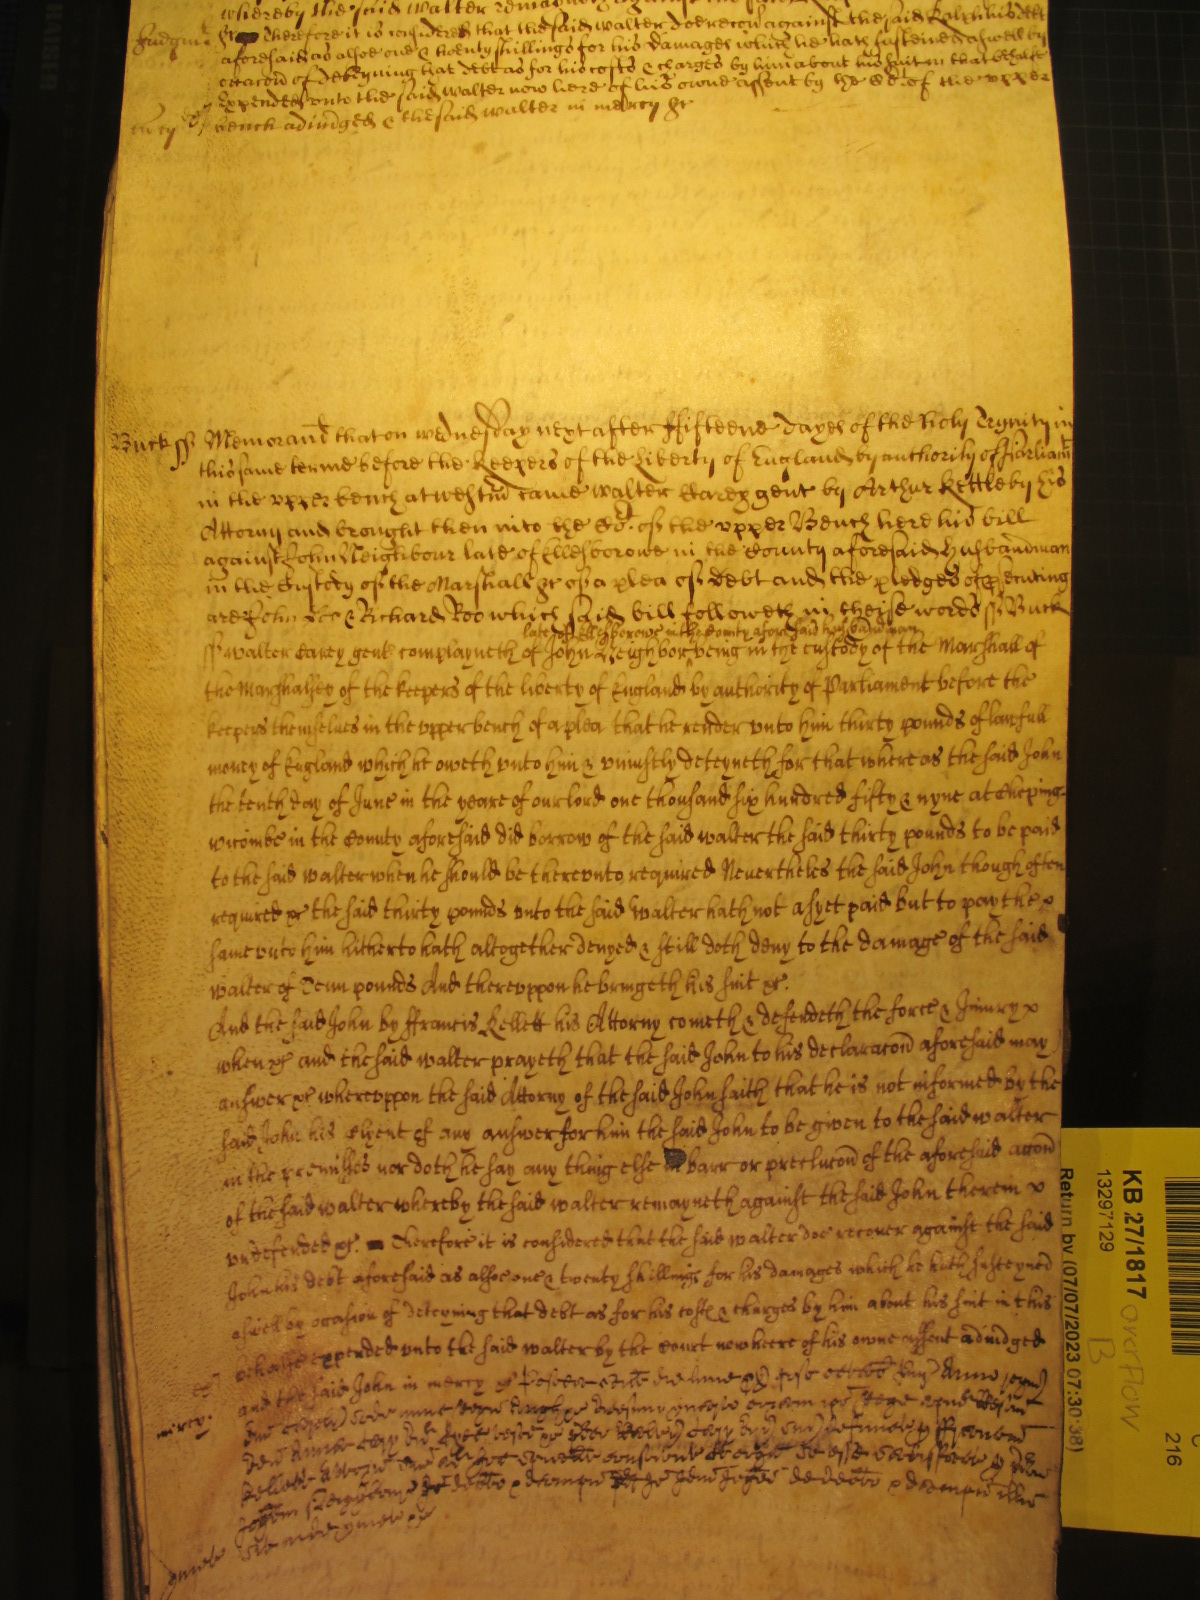 whereby the said Walter remayneth against the said
Judgmt
&c Therefore it is considered that the said Walter doe recover against the said Ralph his debt
aforesaid as alsoe one & twenty shillings for his damages which he hath susteined aswell by
occacon of deteyning that debt as for his costs & charges by him about his suit in that behalfe
expended unto the said Walter now here of his owne assent by the Co: of the upper
mercy
bench adiudged & the said Walter in mercy &c
Buck ss
Memorand that on wednesday next after ffifteene dayes of the holy Trynity in
this same terme before the Keepers of the Liberty of England by authority of Parliamt
in the upper bench at Westm came Walter Carey gent by Arthur Kettleby his
Attorny and brought then into the Co: of the upper Bench here his bill
against John Neighbour late of Ellesborowe in the County aforesaid Husbandman
in the Custody of the Marshall &c of a plea of debt and the pledges of prosecuting
are John Doe & Richard Roo which said bill followeth in theise words ss Buck
late of Ellesborowe in the County aforesaid husbandman
ss Walter Carey gent complayneth of John Neighbor being in the custody of the Marshall of
the Marshalsey of the keepers of the liberty of England by authority of Parliament before the
keepers themselves in the upper bench of a plea that he render unto him thirty pounds of lawfull
money of England which he oweth unto him & uniustly deteyneth for that where as the said John
the tenth day of June in the yeare of our lord one thousand six hundred fifty & nyne at Cheping-
wicombe in the County aforesaid did borrow of the said Walter the said thirty pounds to be paid
to the said Walter when he should be thereunto required Nevertheles the said John though often
required &c the said thirty pounds unto the said Walter hath not as yet paid but to pay the
same unto him hitherto hath altogether denyed & still doth deny to the damage of the said
Walter of Tenn pounds And thereuppon he bringeth his suit &c.
And the said John by ffrancis Kellett his Attorny cometh & defendeth the force & Iniury
when &c and the said Walter prayeth that the said John to his declaracon aforesaid may
answer &c whereuppon the said Attorny of the said John saith that he is not informed by the
said John his Clyent of any answer for him the said John to be given to the said Walter
in the premisses nor doth he say any thing else in barr or preclucon of the aforesaid accon
of the said Walter whereby the said Walter remayneth against the said John therein
undefended &c. Therefore it is considered that the said Walter doe recover against the said
John his debt aforesaid as alsoe one & twenty shillings for his damages which he hath susteyned
aswell by occasion of deteyning that debt as for his costs & charges by him about his suit in this
behalfe expended unto the said Walter by the Court now heere of his owne assent adiudged
mercy.
and the said John in mercy &c
Anno
Kellett
KB 27/1817
13297129
Return by (07/07/2023 07:30:38)
overflow
B
216